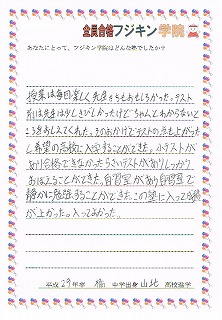 全員合格フジキン学院
あなたにとって、フジキン学院はどんな塾でしたか？
授業は毎回楽しく先生たちもおもしろかった。テスト
前は先生は少しきびしかったけどちゃんとわからないと
ころをおしえてくれた。そのおかげでテストの点も上がった
し希望の高校に入学することができた。小テストが
あり合格できなかったらさいテストがありしっかり
おぼえることができた。自習室があり自習室で
静かに勉強することができた。この塾に入って成績
が上がった。入ってよかった。
平成 29年卒 橘 中学出身 山北 高校進学